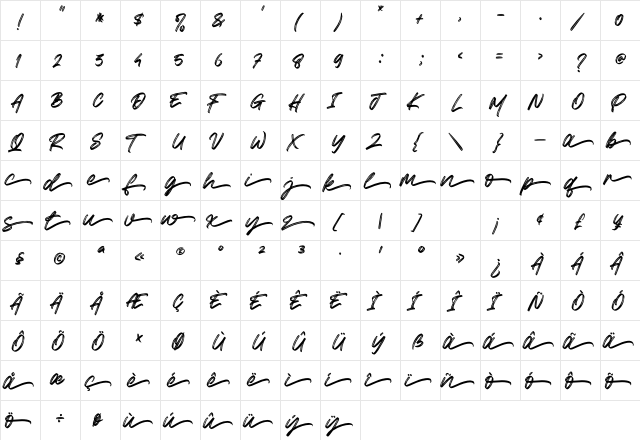 ! " # $ % & ' ( ) * + , - . / 0
1 2 3 4 5 6 7 8 9 : ; < = > ? @
A B C D E F G H I J K L M N O P
Q R S T U V W X Y Z { \ } — a b
c d e f g h i j k l m n o p q r
s t u v w x y z [ | ] ¡ ¢ £ ¥
§ © ª « ® ° ² ³ · ¹ º » ¿ À Á Â
Ã Ä Å Æ Ç È É Ê Ë Ì Í Î Ï Ñ Ò Ó
Ô Õ Ö × Ø Ù Ú Û Ü Ý ß à á â ã ä
å æ ç è é ê ë ì í î ï ñ ò ó ô õ
ö ÷ ø ù ú û ü ý ÿ